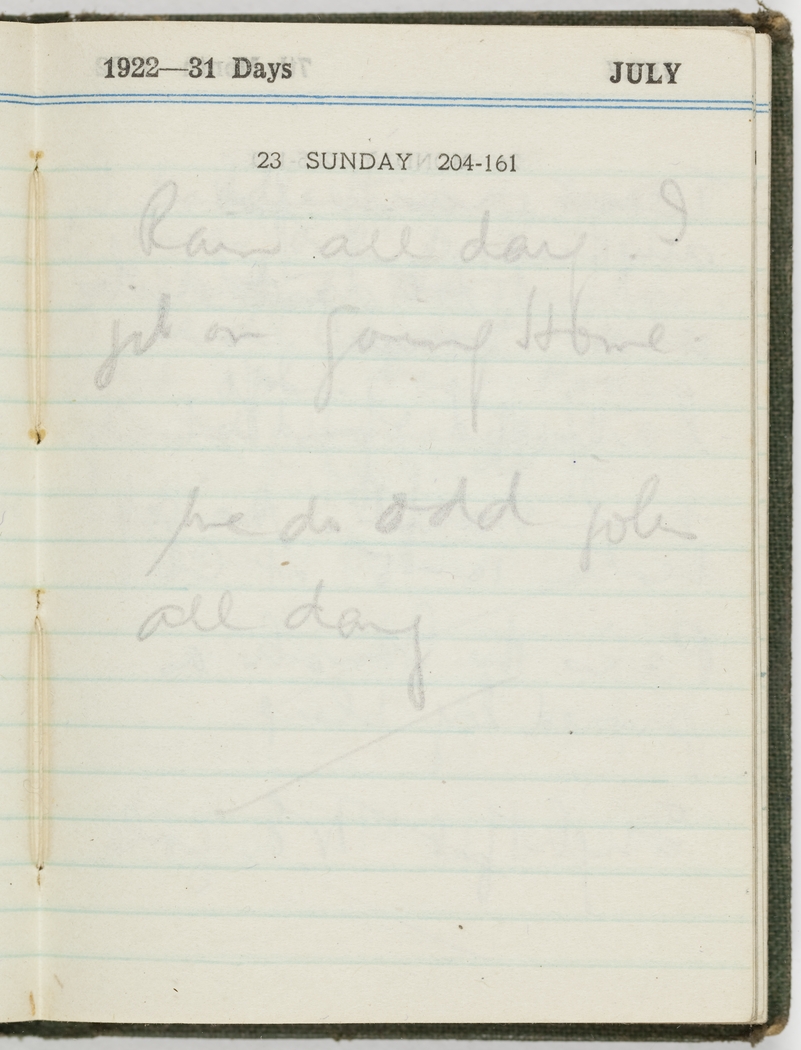 1922—31 Days JULY
23 SUNDAY 204-161
Rain all day. I
jib on going Home.
we do odd jobs
all day